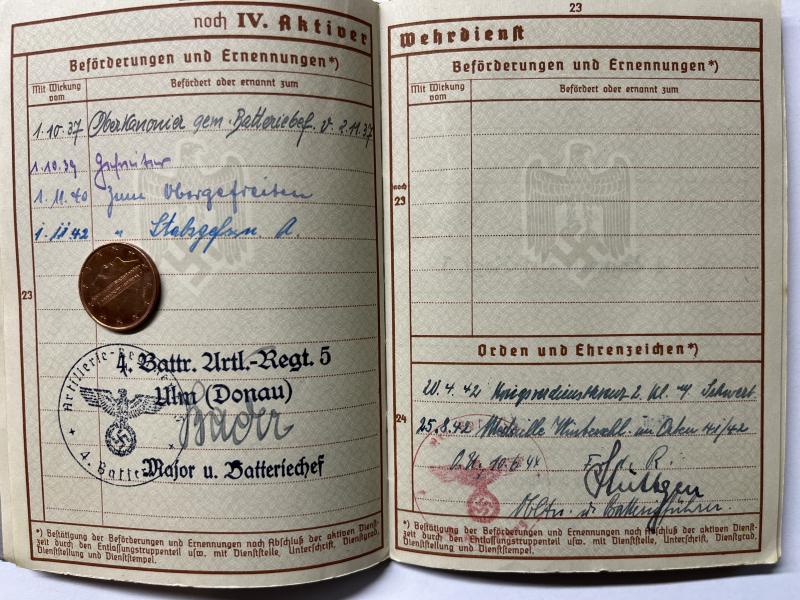 noch IV. Aktiver
Beförderungen und Ernennungen*)
Mit Wirkung vom
Befördert oder ernannt zum
1.10.37 Oberkanonier gem. Batteriebef. v. 2.11.37
1.10.39 Gefreiter
1.11.40 Zum Obergefreiten
1.11.42 " Stabsgefr.
23
4. Battr. Artl.-Regt. 5
Ulm (Donau)
Major u. Batteriechef
Artillerie-
4. Batte
*) Bestätigung der Beförderungen und Ernennungen nach Abschluß der aktiven Dienst-
zeit durch den Entlassungstruppenteil usw. mit Dienststelle, Unterschrift, Dienstgrad,
Dienststellung und Dienststempel.
23
Wehrdienst
Beförderungen und Ernennungen*)
Mit Wirkung vom
Befördert oder ernannt zum
noch
23
Orden und Ehrenzeichen*)
20.4.42 Kriegsverdienstkreuz 2. Kl. Schwert
25.8.42 Medaille im Osten 41/42
24
O.U. 10.6.44
Obltn. u. Batterieführer.
*) Bestätigung der Beförderungen und Ernennungen nach Abschluß der aktiven Dienst-
zeit durch den Entlassungstruppenteil usw. mit Dienststelle, Unterschrift, Dienstgrad,
Dienststellung und Dienststempel.